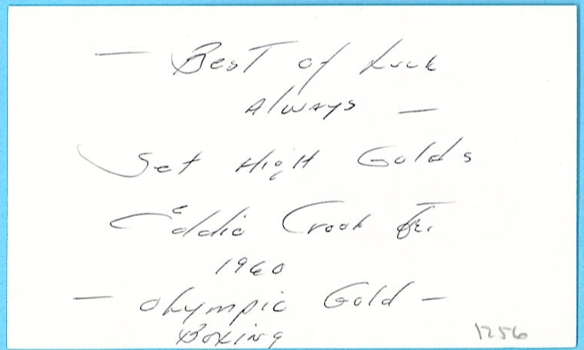 — Best of Luck
Always —
Set High Golds
Eddie Crook Jr.
1960
— Olympic Gold —
Boxing
1256